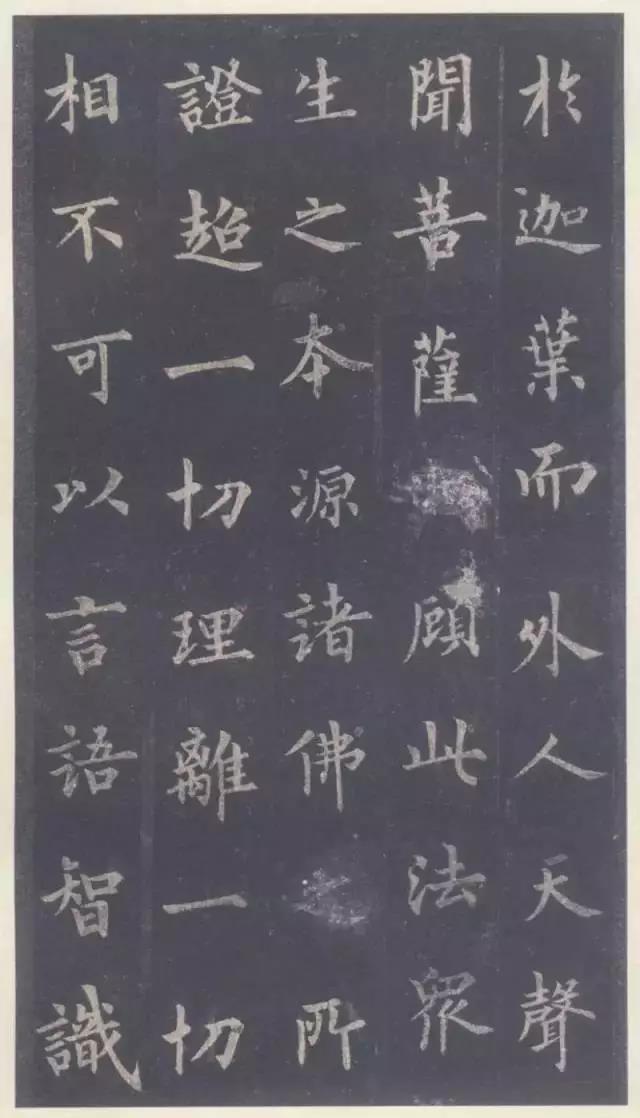 於迦葉而外人天聲
聞菩薩顧此法眾
生之本源諸佛所
證超一切理離一切
相不可以言語智識